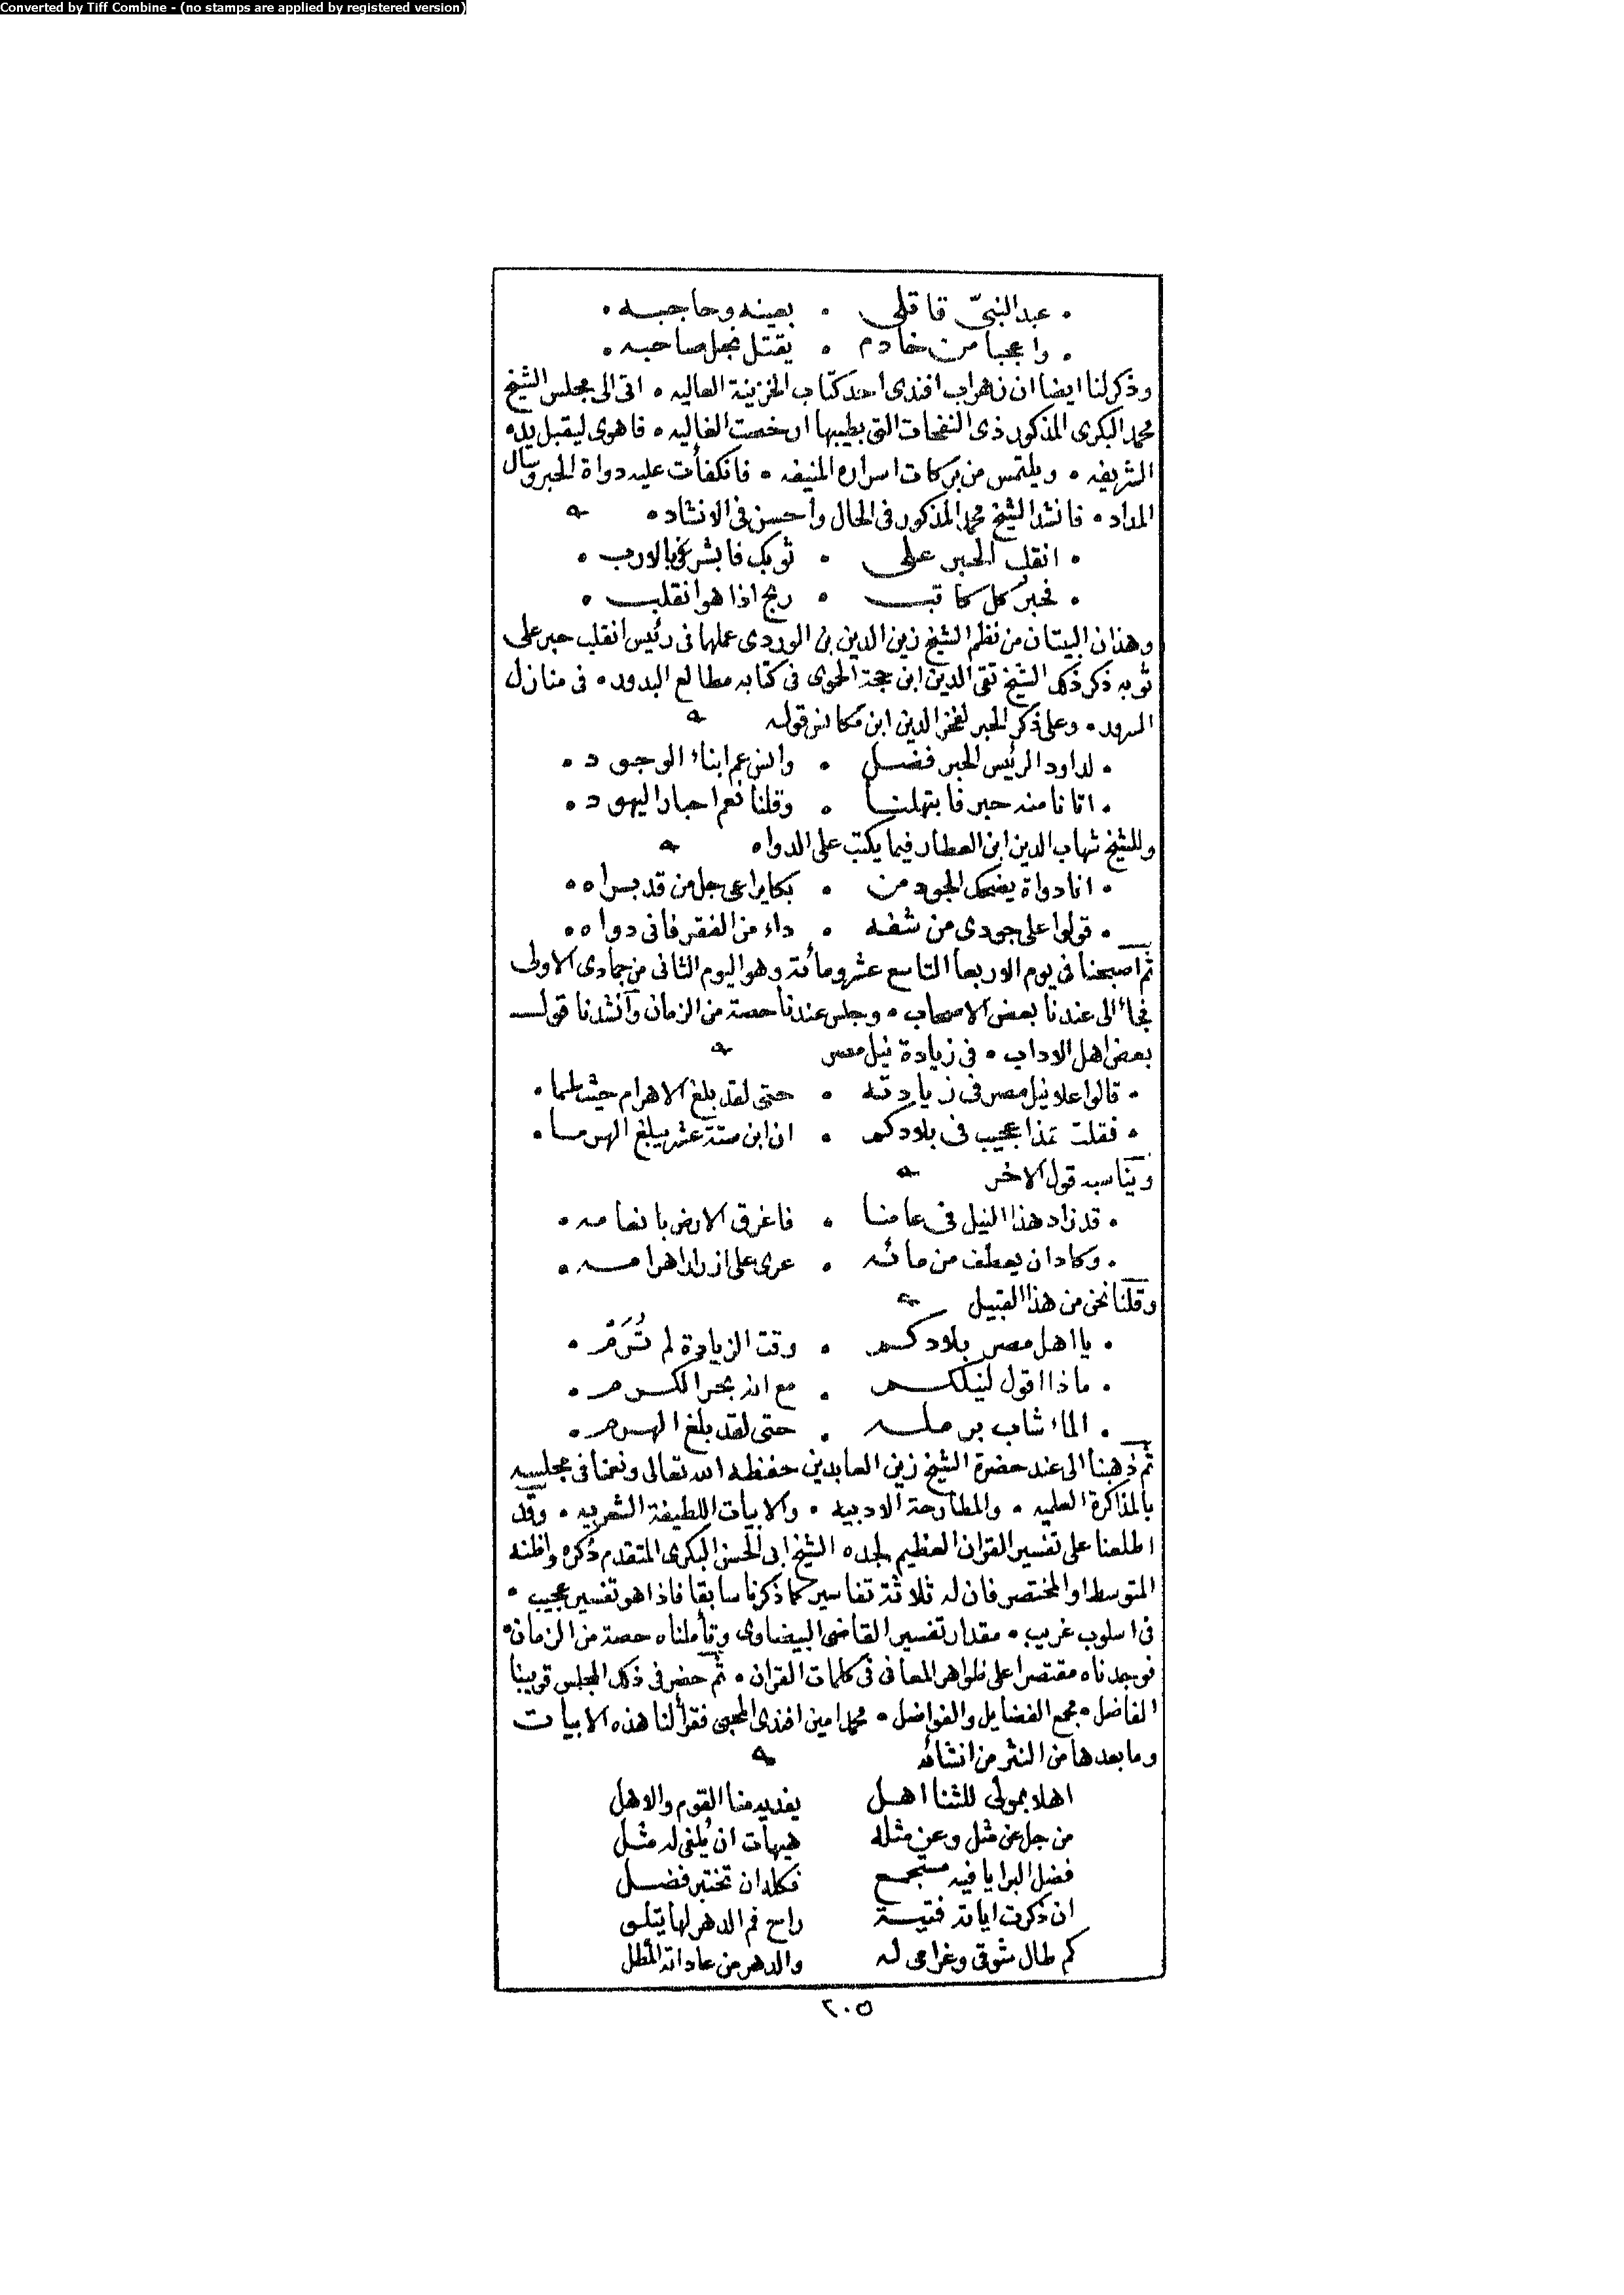 Converted by Tiff Combine - (no stamps are applied by registered version)
• عبد النبيّ قاتلى • بعينه وحاجبه •
• واعجبا من خادم • يقتل نجل صاحبه •
وذكر لنا ايضا ان زهراب افندى احد كتاب الخزينة العاليه • اتى الى مجلس الشيخ
محمد البكرى المذكور ذى النفحات التى بطيبها ارخصت الغاليه • فاهوى ليقبل يده
الشريفه • ويلتمس من بركات اسراره المنيفه • فانكفأت عليه دواة الحبر وسال
المداد • فانشد الشيخ محمد المذكور فى الحال وأحسن فى الانشاد •
• انقلب الحبر على • ثوبك فابشر بالارب •
• فحبر كل كاتب • ربح اذا هو انقلب •
وهذان البيتان من نظم الشيخ زين الدين بن الوردى عملها فى رئيس انقلب حبر على
ثوبه ذكر ذلك الشيخ تقى الدين ابن حجة الحموى فى كتابه مطالع البدور • فى منازل
السرور • وعلى ذكر الحبر لفخر الدين ابن مكانس قوله
• لداود الرئيس الحبر فضل • وانس عم ابناء الوجود •
• اتانا منه حبر فابتهلنا • وقلنا نعم احبار اليهود •
وللشيخ شهاب الدين ابن العطار فيما يكتب على الدواه
• انا دواة يضحك الجود من • بكا يراعى جل من قد براه •
• قولوا على جودى من شفه • داء من الفقر فانى دواه •
ثم اصبحنا فى يوم الاربعا التاسع عشر ومائة وهو اليوم الثانى من جمادى الاولى
فجاء الى عندنا بعض الاصحاب • وجلس عندنا حصة من الزمان وأنشدنا قول
بعض اهل الاداب • فى زيادة نيل مصر
• قالوا علا نيل مصر فى زيادته • حتى لقد بلغ الاهرام حيث طما •
• فقلت هذا عجيب فى بلادكم • ان ابن ستة عشر يبلغ الهرما •
ويناسبه قول الاخر
• قد زاد هذا النيل فى عامنا • فاغرق الارض بانعامه •
• وكاد ان يعطف من مائه • عرى على ازرار اهرامه •
وقلنا نحن من هذا القبيل
• يا اهل مصر بلادكم • وقت الزيادة لم تُرَمْ •
• ماذا اقول لنيلكم • مع انه بحر الكرم •
• الماء شاب برمله • حتى لقد بلغ الهرم •
ثم ذهبنا الى عند حضرة الشيخ زين العابدين حفظه الله تعالى ونعمنا فى مجلسه
بالمذاكرة العلميه • والمطارحة الادبيه • والابيات اللطيفة الشعريه • وقد
اطلعنا على تفسير القران العظيم لجده الشيخ ابى الحسن البكرى المتقدم ذكره واظنه
المتوسط او المختصر فان له ثلاثة تفاسير كما ذكرنا سابقا فاذا هو تفسير عجيب •
فى اسلوب غريب • مقدار تفسير القاضى البيضاوى وتأملناه حصة من الزمان •
فوجدناه مقتصرا على ظواهر المعانى فى كلمات القران • ثم حضر فى ذلك المجلس قريبنا
الفاضل • مجمع الفضايل والفواضل • محمد امين افندى المحبى فقرأ لنا هذه الابيات
وما بعدها من النثر من انشائه
اهلا بمولى للثنا اهل يفديه منا القوم والاهل
من جل عن مثل وعن مثله هيهات ان يُلفى له مثل
فضل البرايا فيه مستجمع فكله ان تختبر فضل
ان ذكرت اياته فتية راح فم الدهر لها يتلو
كم طال شوقى وغرامى له والدهر من عاداته المطل
٢٠٥